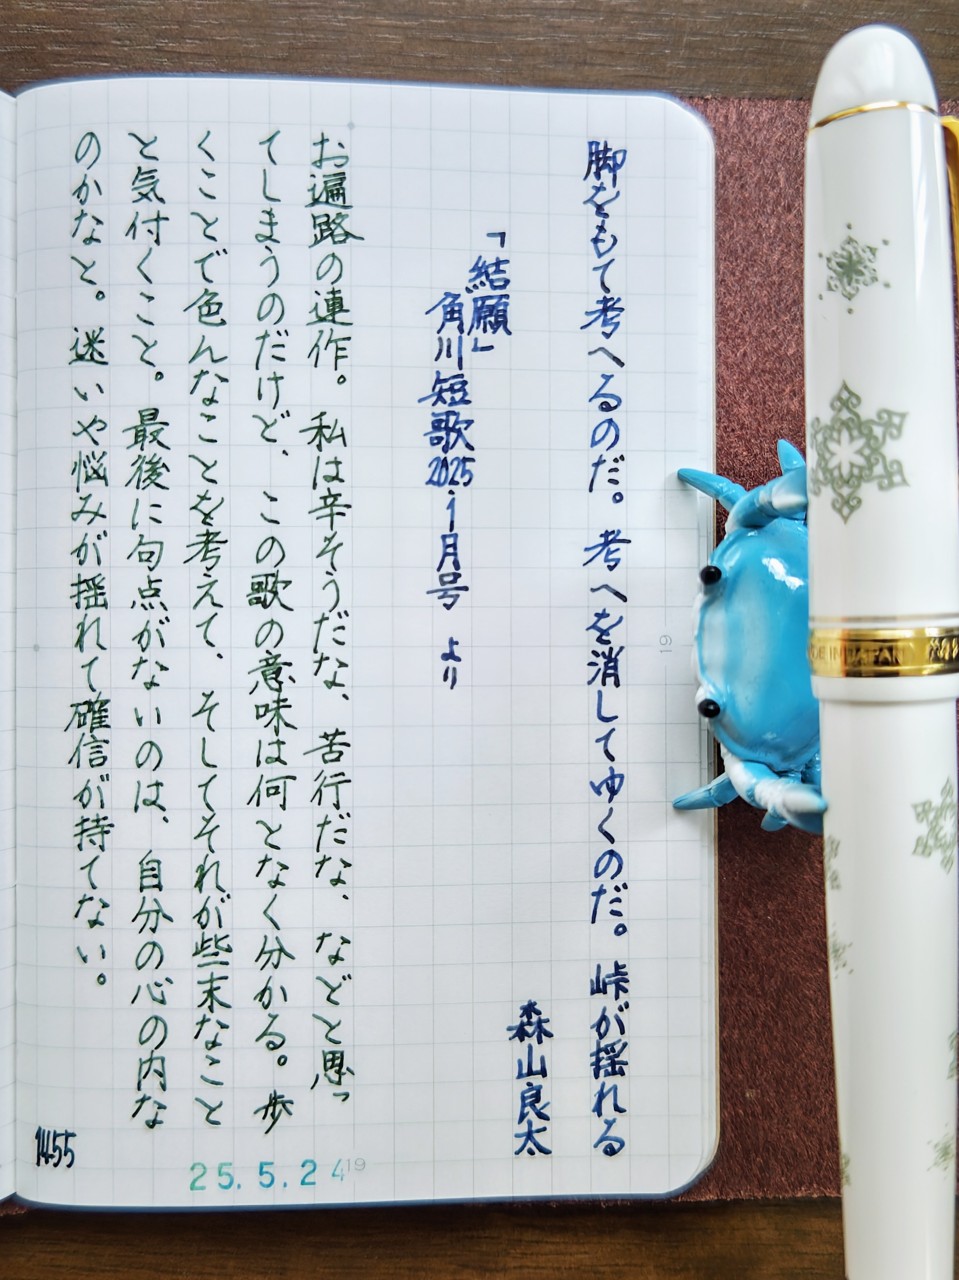 脚をもて考へるのだ。考へを消してゆくのだ。峠が揺れる
森山良太
「結願」
角川短歌2025-1月号 より
お遍路の連作。私は辛そうだな、苦行だな、などと思っ
てしまうのだけど、この歌の意味は何となく分かる。歩
くことで色んなことを考えて、そしてそれが些末なこと
と気付くこと。最後に句点がないのは、自分の心の内な
のかなと。迷いや悩みが揺れて確信が持てない。
1455
25.5.24
19
19